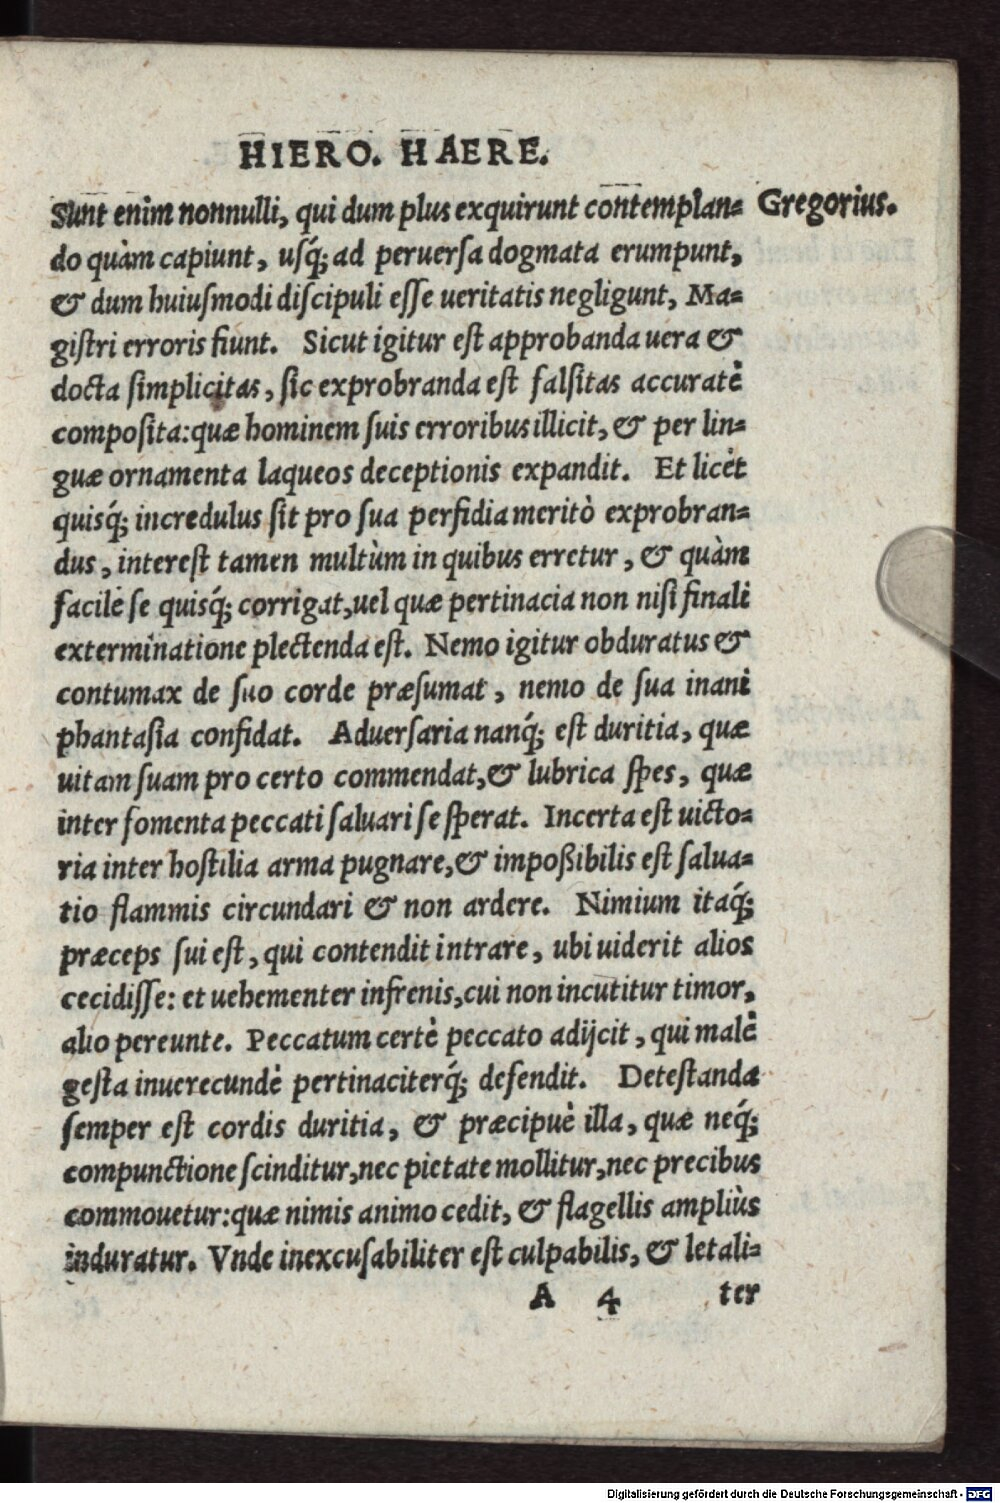 HIERO. HAERE.
Sunt enim nonnulli, qui dum plus exquirunt contemplan= Gregorius.
do quàm capiunt, usq́; ad peruersa dogmata erumpunt,
& dum huiusmodi discipuli esse ueritatis negligunt, Ma=
gistri erroris fiunt. Sicut igitur est approbanda uera &
docta simplicitas, sic exprobranda est falsitas accuratè
composita: quæ hominem suis erroribus illicit, & per lin=
guæ ornamenta laqueos deceptionis expandit. Et licèt
quisq́; incredulus sit pro sua perfidia meritò exprobran=
dus, interest tamen multùm in quibus erretur, & quàm
facilè se quisq́; corrigat, uel quæ pertinacia non nisi finali
exterminatione plectenda est. Nemo igitur obduratus &
contumax de suo corde præsumat, nemo de sua inani
phantasia confidat. Aduersaria nanq́; est duritia, quæ
uitam suam pro certo commendat, & lubrica spes, quæ
inter fomenta peccati saluari se sperat. Incerta est uicto=
ria inter hostilia arma pugnare, & impoßibilis est salua=
tio flammis circundari & non ardere. Nimium itaq́;
præceps sui est, qui contendit intrare, ubi uiderit alios
cecidisse: et uehementer infrenis, cui non incutitur timor,
alio pereunte. Peccatum certè peccato adijcit, qui malè
gesta inuerecundè pertinaciterq́; defendit. Detestanda
semper est cordis duritia, & præcipuè illa, quæ neq́;
compunctione scinditur, nec pietate mollitur, nec precibus
commouetur: quæ nimis animo cedit, & flagellis ampliùs
induratur. Vnde inexcusabiliter est culpabilis, & letali=
A 4 ter
Digitalisierung gefördert durch die Deutsche Forschungsgemeinschaft - DFG